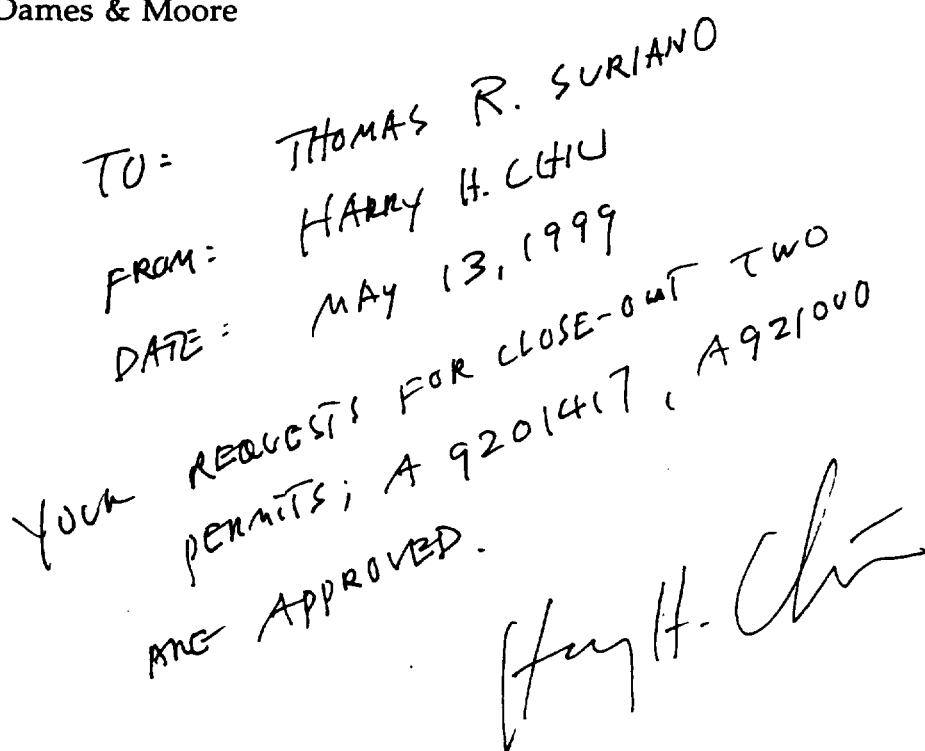 Dames & Moore
TO: THOMAS R. SURIANO
FROM: HARRY H. CHIU
DATE: MAY 13, 1999
YOUR REQUESTS FOR CLOSE-OUT TWO
PERMITS; A 9201417, A921000
ARE APPROVED.
Harry H. Chiu